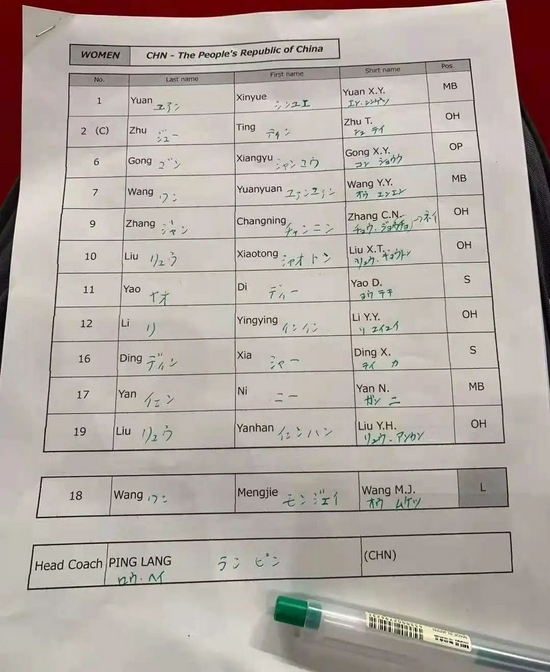 WOMEN CHN - The People's Republic of China
No. Last name First name Shirt name Pos.
1 Yuan ユアン Xinyue シンユエ Yuan X.Y. MB
2 (C) Zhu ジュー Ting ティン Zhu T. OH
シュ テイ
6 Gong ゴン Xiangyu シャンユウ Gong X.Y. OP
コン ショウウ
7 Wang ワン Yuanyuan ユアンユアン Wang Y.Y. MB
オウ エンエン
9 Zhang ジャン Changning チャンニン Zhang C.N. OH
10 Liu リュウ Xiaotong シャオトン Liu X.T. OH
リュウ・ギョウトウ
11 Yao ヤオ Di ディー Yao D. S
ヨウ テキ
12 Li リ Yingying インイン Li Y.Y. OH
リ エイエイ
16 Ding ディン Xia シャー Ding X. S
テイ カ
17 Yan イェン Ni ニー Yan N. MB
ガン ニ
19 Liu リュウ Yanhan イェンハン Liu Y.H. OH
リュウ・アンカン
18 Wang ワン Mengjie モンジェイ Wang M.J. L
オウ ムケツ
Head Coach PING LANG ラン ピン (CHN)
ロウ・ヘイ